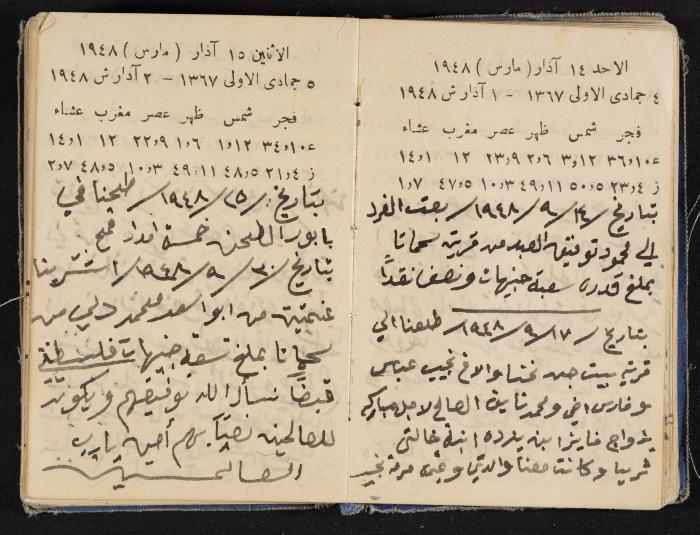 الاحد ١٤ آذار (مارس) ١٩٤٨
٤ جمادى الاولى ١٣٦٧ – ١ آذار ش ١٩٤٨
فجر شمس ظهر عصر مغرب عشاء
ع ١٠و٣٦ ١٢و٣ ٦و٢ ٩و٢٣ ١٢ ١و١٤
ز ٤و٢٣ ٥و٥٠ ١١و٤٩ ٣و١٠ ٥و٤٧ ٧و١
بتاريخ /١٤/ ٩/ ١٩٤٨/ بعت الفرد
الي محمود توفيق العبد من قرية سحماتا
بملغ قدره سبعة جنيهات ونصف نقداً
بتاريخ /١٧/ ٩/ ١٩٤٨/ طلعنا الي
قرية بيت جن نحنا والاخ نجيب عباس
وفارس اخي ومحمد نايف الصالح لاجل مباركه
بزواج فايز ابن يزده ابنة خالتي
ثريا وكانت معنا والدتي وعمتي مرة نجيب
الاثنين ١٥ آذار (مارس) ١٩٤٨
٥ جمادى الاولى ١٣٦٧ – ٢ آذار ش ١٩٤٨
فجر شمس ظهر عصر مغرب عشاء
ع ١٠و٣٤ ١٢و١ ٦و١ ٩و٢٢ ١٢ ١و١٤
ز ٤و٢١ ٥و٤٨ ١١و٤٩ ٣و١٠ ٥و٤٨ ٧و٢
بتاريخ /٢٥/ ١٩٤٨/ طحنا في
بابور الطحن خمسة امداد قمح
بتاريخ /٣٠/ ٩/ ١٩٤٨/ اشترينا
من ابو اسعد محمد من
سحماتا بملغ تسعة جنيهات
قبضاً نسأل الله توفيقهم ويكون
للصالحين نصيباً بهم أمين يارب
العالمـــين